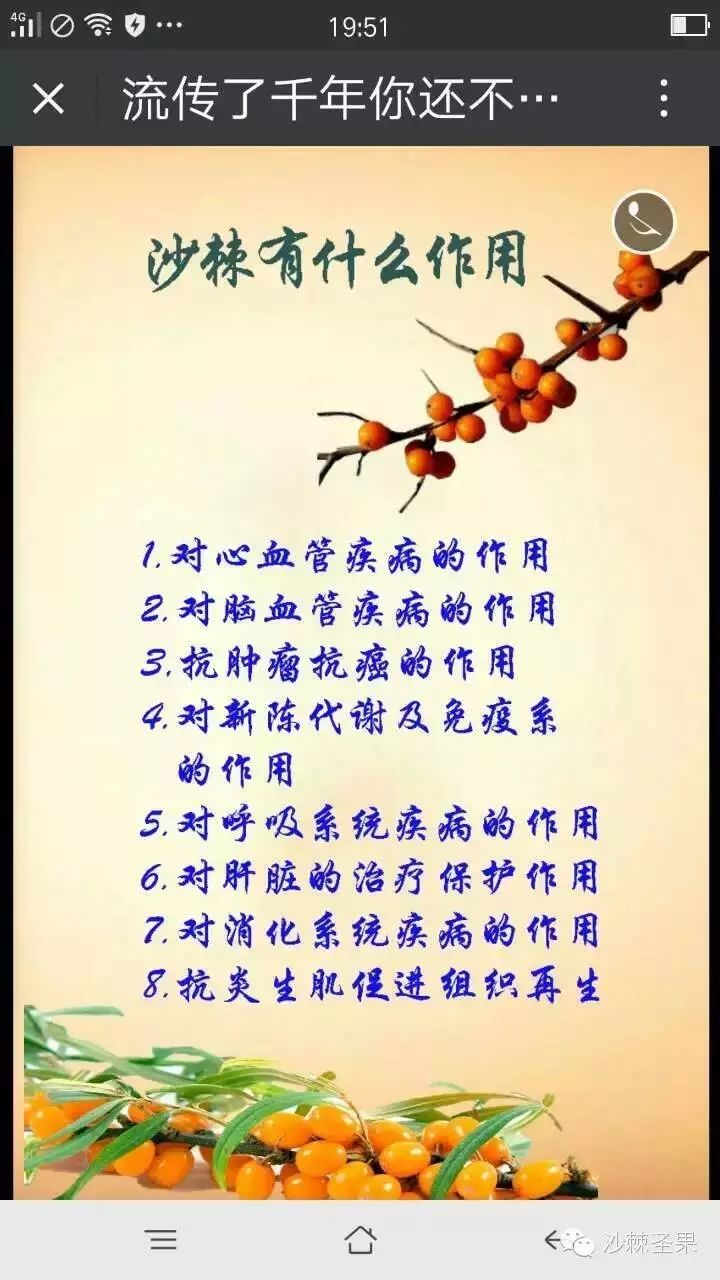 4G
19:51
流传了千年你还不…
沙棘有什么作用
1.对心血管疾病的作用
2.对脑血管疾病的作用
3.抗肿瘤抗癌的作用
4.对新陈代谢及免疫系
的作用
5.对呼吸系统疾病的作用
6.对肝脏的治疗保护作用
7.对消化系统疾病的作用
8.抗炎生肌促进组织再生
沙棘圣果